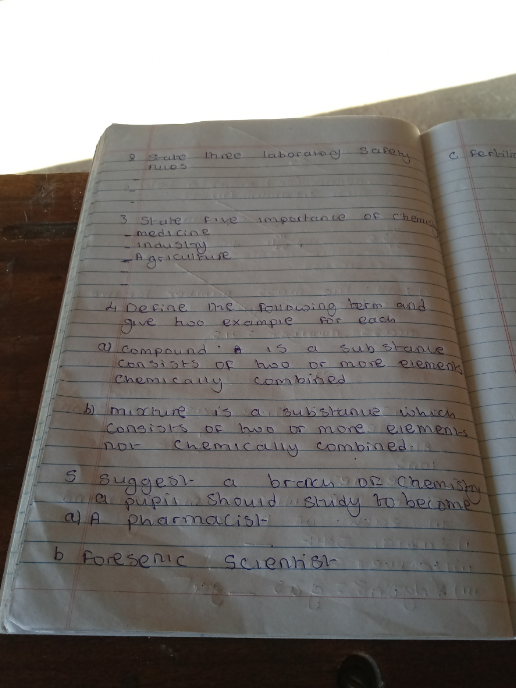 2 State three laboratory Safety
rules
-
-
-
3 State five importance of Chemis
- medicine
- industry
- Agriculture
-
-
4 Define the following term and
give two example for each
a) compound : A is a substance
consists of two or more elements
Chemically combined
b) mixture is a substance which
consists of two or more elements
not Chemically combined.
5 Suggest a branch of Chemistry
a pupil should study to become
a) A pharmacist
b Foresenic Scientist
C